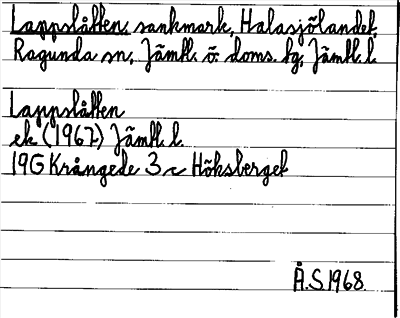 Lappslåtten, sankmark, Halasjölandet,
Ragunda sn, Jämtl. ö. doms. hg, Jämtl. l.
Lappslåtten
ek (1967) Jämtl. l.
19G Krångede 3 c Höksberget
Å.S. 1968.